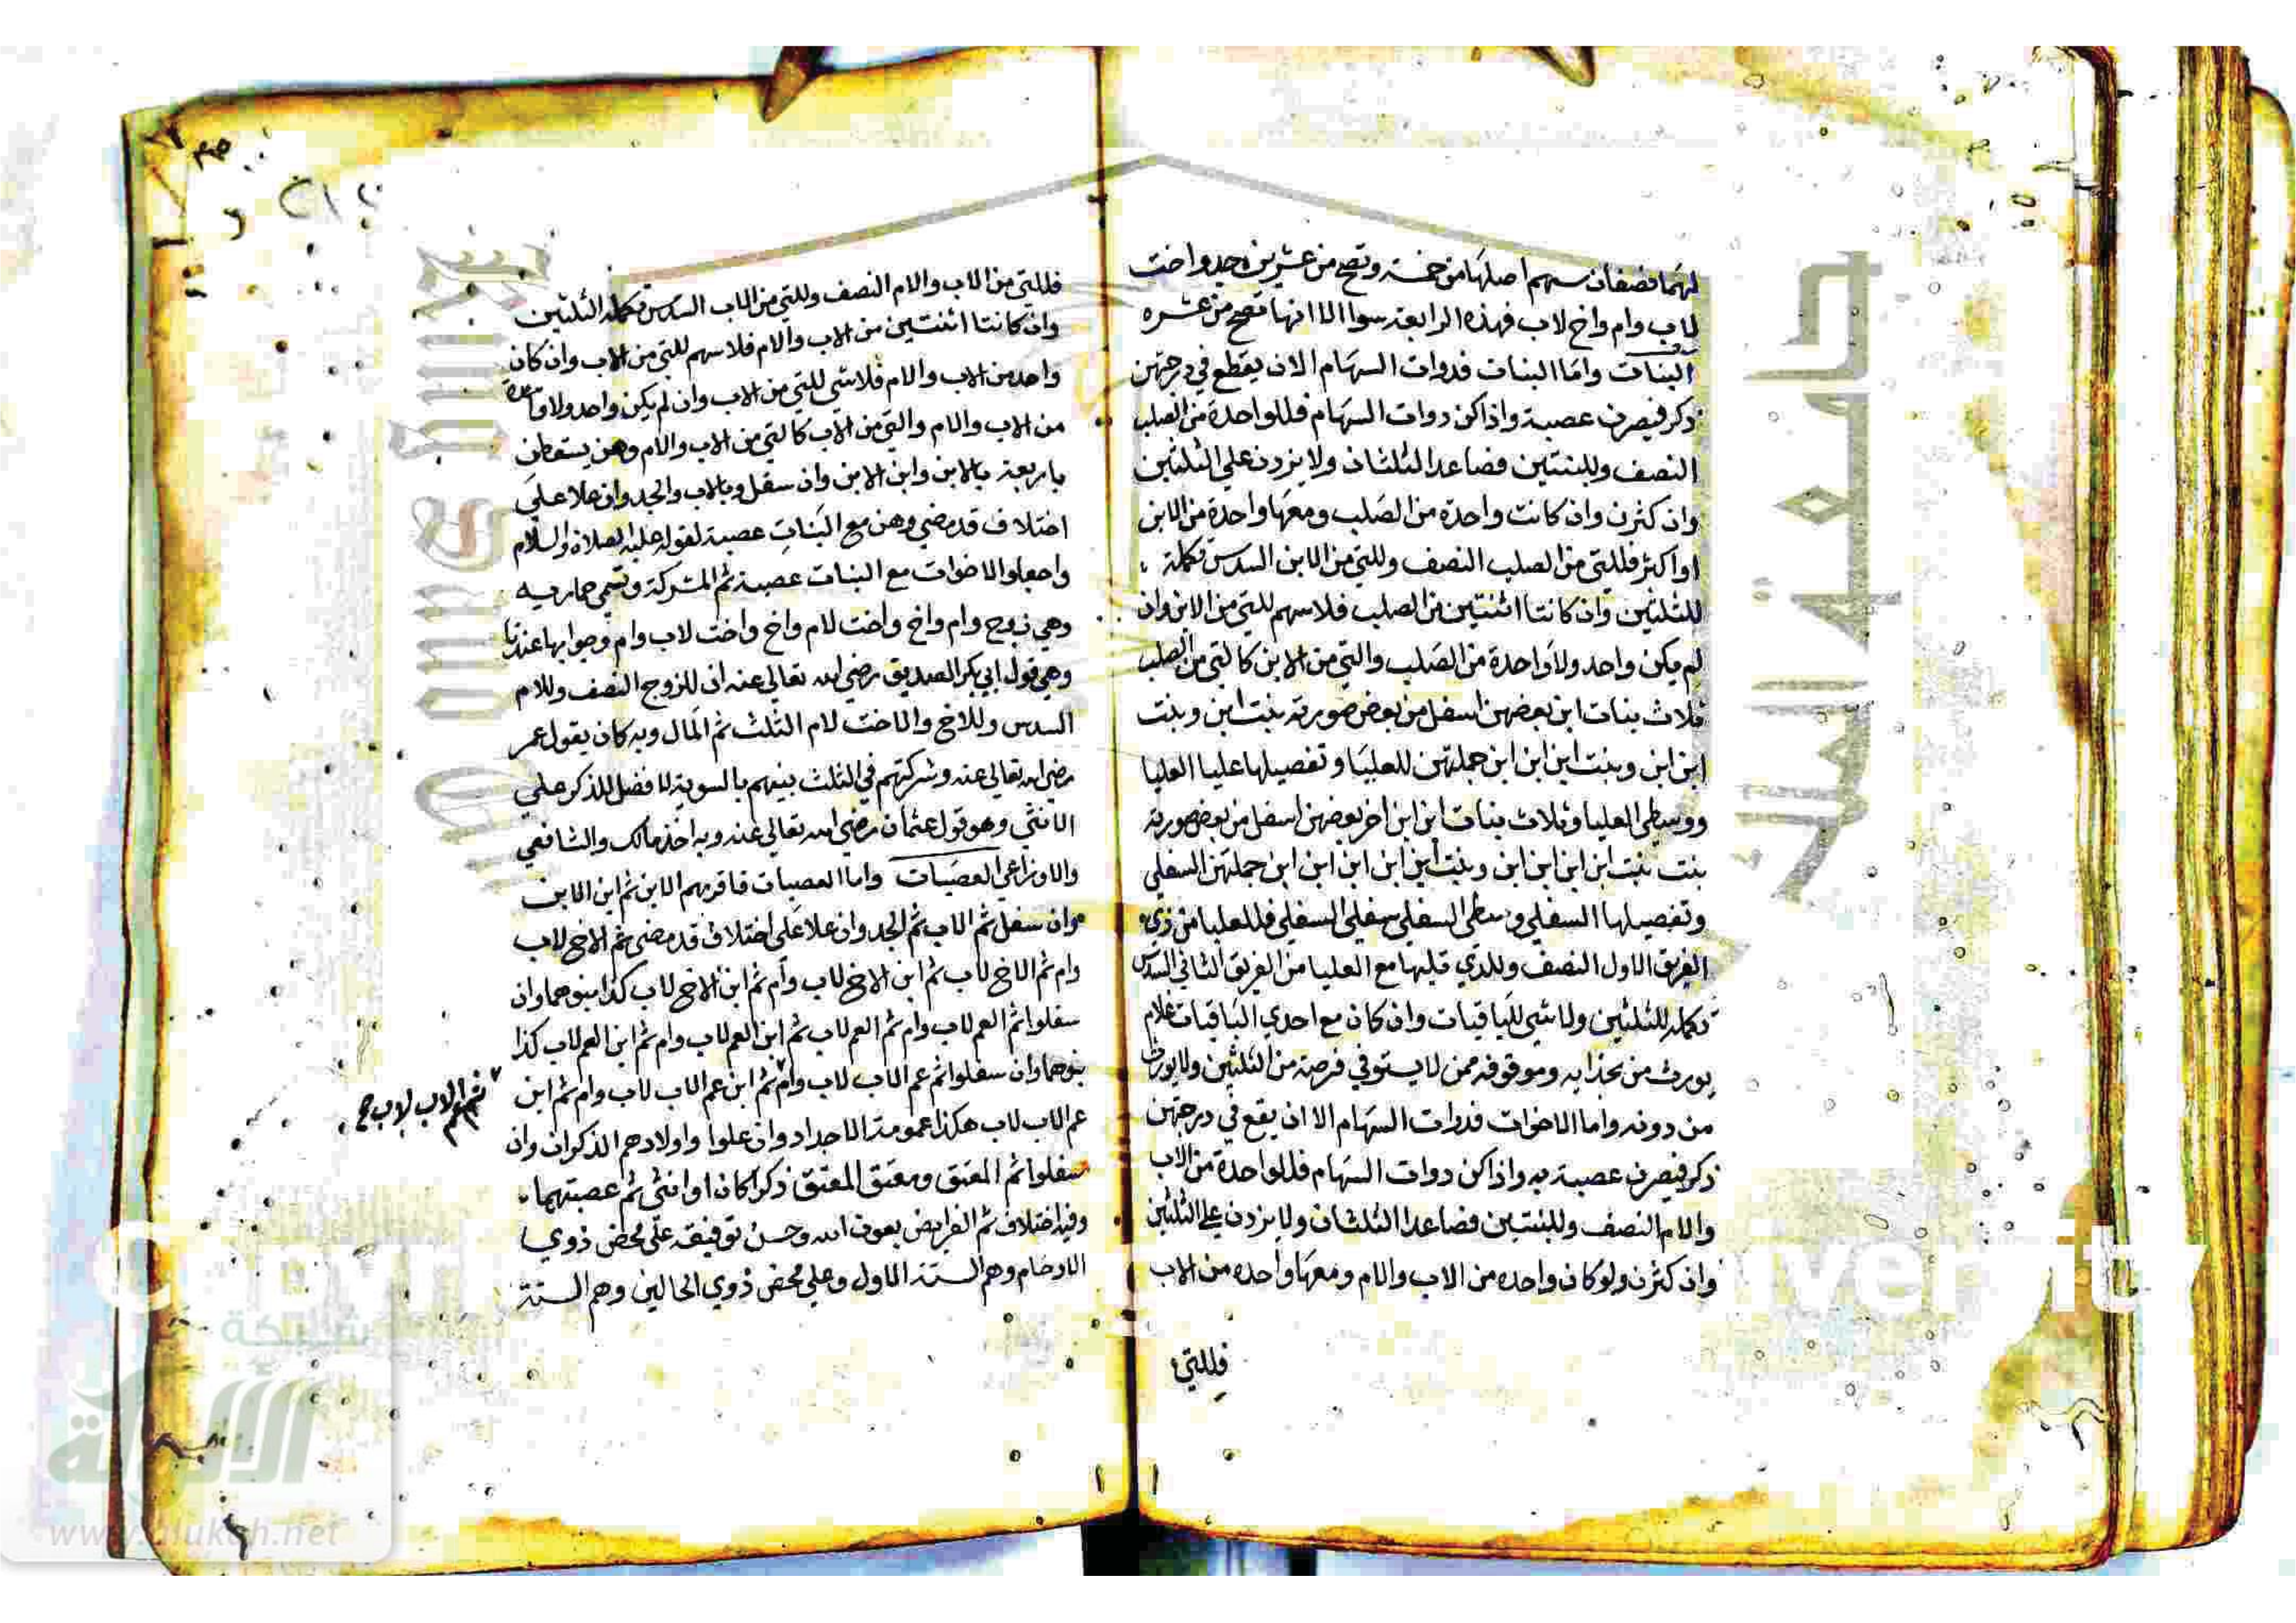 لهما فضفان سهم اصلها من خمسة وتصح من عشرين جد واخت
لاب وام واخ لاب فهذه الرابعة سوا الا انها تصح من عشره
البنات واما البنات فدوات السهام الا ان يقطع في درجتهن
ذكر فيصرن عصبة واذا كن دوات السهام فللواحدة من الصلب
النصف وللبنتين فصاعدا الثلثان ولا يزدن علي الثلثين
وان كثرن وان كانت واحدة من الصلب ومعها واحدة من الابن
او اكثر فللتي من الصلب النصف وللتي من الابن السدس تكملة
للثلثين وان كانتا اثنتين من الصلب فلا سهم للتي من الابن وان
لم يكن واحد ولا واحدة من الصلب والتي من الابن كالتي من الصلب
ثلاث بنات ابن بعضهن اسفل من بعض صورته بنت ابن وبنت
ابن ابن وبنت ابن ابن ابن جملتهن للعليا وتفصيلها عليا العليا
ووسطي العليا وثلاث بنات ابن ابن اخر بعضهن اسفل من بعض صورته
بنت بنت ابن ابن ابن ابن وبنت ابن ابن ابن ابن ابن جملتهن السفلي
وتفصيلها السفلي وسطي السفلي سفلي السفلي فللعليا من ذي
الفريق الاول النصف وللذي قبلها مع العليا من الفريق الثاني السدس
تكملة للثلثين ولا شي للباقيات وان كان مع احدي الباقيات غلام
يورث من بحذايه وموقوفه ممن لا يستوفي فرضه من الثلثين ولا يورث
من دونه واما الاخوات فدوات السهام الا ان يقع في درجتهن
ذكر فيصرن عصبة به واذا كن دوات السهام فللواحدة من الاب
والام النصف وللبنتين فصاعدا الثلثان ولا يزدن علي الثلثين
وان كثرن ولو كان واحده من الاب والام ومعها واحده من الاب
فللتي
فللتي من الاب والام النصف وللتي من الاب السدس تكملة الثلثين
وان كانتا اثنتين من الاب والام فلا سهم للتي من الاب وان كان
واحد من الاب والام فلا شي للتي من الاب وان لم يكن واحد ولا واحدة
من الاب والام والتي من الاب كالتي من الاب والام وهن يسقطن
باربعة بالابن وابن الابن وان سفل وبالاب والجد وان علا علي
اختلاف قد مضي وهن مع البنات عصبة لقوله عليه الصلاة والسلام
واجعلوا الاخوات مع البنات عصبة ثم المشركة وتسمي حماريه
وهي زوج وام واخ واخت لام واخ واخت لاب وام وجوابها عندنا
وهي قول ابي بكر الصديق رضي الله تعالي عنه ان للزوج النصف وللام
السدس وللاخ والاخت لام الثلث ثم المال وبه كان يقول عمر
رضي الله تعالي عنه وشركتهم في الثلث بينهم بالسوية لا فضل للذكر علي
الانثي وهو قول عثمان رضي الله تعالي عنه وبه اخذ مالك والشافعي
والاوزاعي العصبات واما العصبات فاقربهم الابن ثم ابن الابن
وان سفل ثم الاب ثم الجد وان علا علي اختلاف قد مضي ثم الاخ لاب
وام ثم الاخ لاب ثم ابن الاخ لاب وام ثم ابن الاخ لاب كذا بنوهما وان
سفلوا ثم العم لاب وام ثم العم لاب ثم ابن العم لاب وام ثم ابن العم لاب كذا
بنوهما وان سفلوا ثم عم الاب لاب وام ثم ابن عم الاب لاب وام ثم ابن
ثم عم الاب لاب صح
عم الاب لاب هكذا عمومة الاجداد وان علوا واولادهم الذكران وان
سفلوا ثم المعتق ومعتق المعتق ذكرا كان او انثي ثم عصبتهما
وفيه اختلاف ثم الفرايض بعون الله وحسن توفيقه علي محض ذوي
الارحام وهم الستة الاول وعلي محض ذوي الحالين وهم الستة
جامعة الملك
شبكة
الألوكة
www.alukah.net